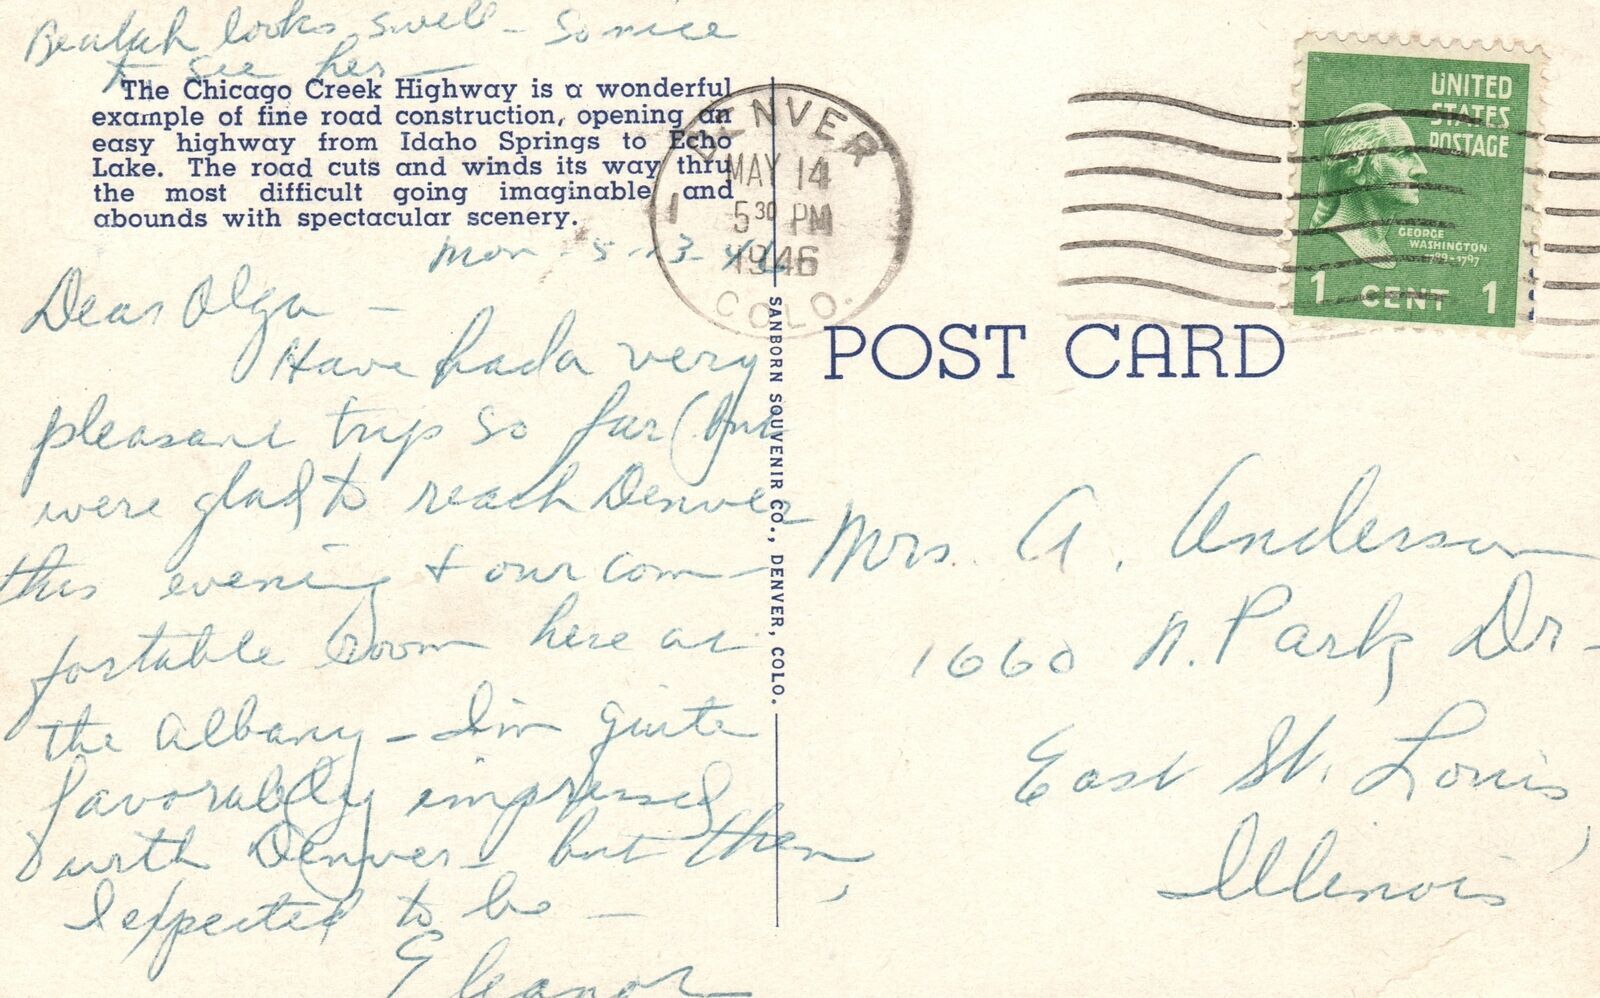 Beulah looks swell - So nice
to see her -
The Chicago Creek Highway is a wonderful
example of fine road construction, opening an
easy highway from Idaho Springs to Echo
Lake. The road cuts and winds its way thru
the most difficult going imaginable and
abounds with spectacular scenery.
Mon - 5-13-46
Dear Olga -
Have had a very
pleasant trip so far (but
were glad to reach Denver
this evening & our com-
fortable room here at
the Albany - I'm quite
favorably impressed
with Denver - but then,
I expected to be -
Eleanor
SANBORN SOUVENIR CO., DENVER, COLO.
DENVER
MAY 14
5 30 PM
1946
COLO.
1
UNITED
STATES
POSTAGE
GEORGE
WASHINGTON
1789-1797
1 CENT 1
POST CARD
Mrs. A. Anderson
1660 N. Park Dr.
East St. Louis,
Illinois